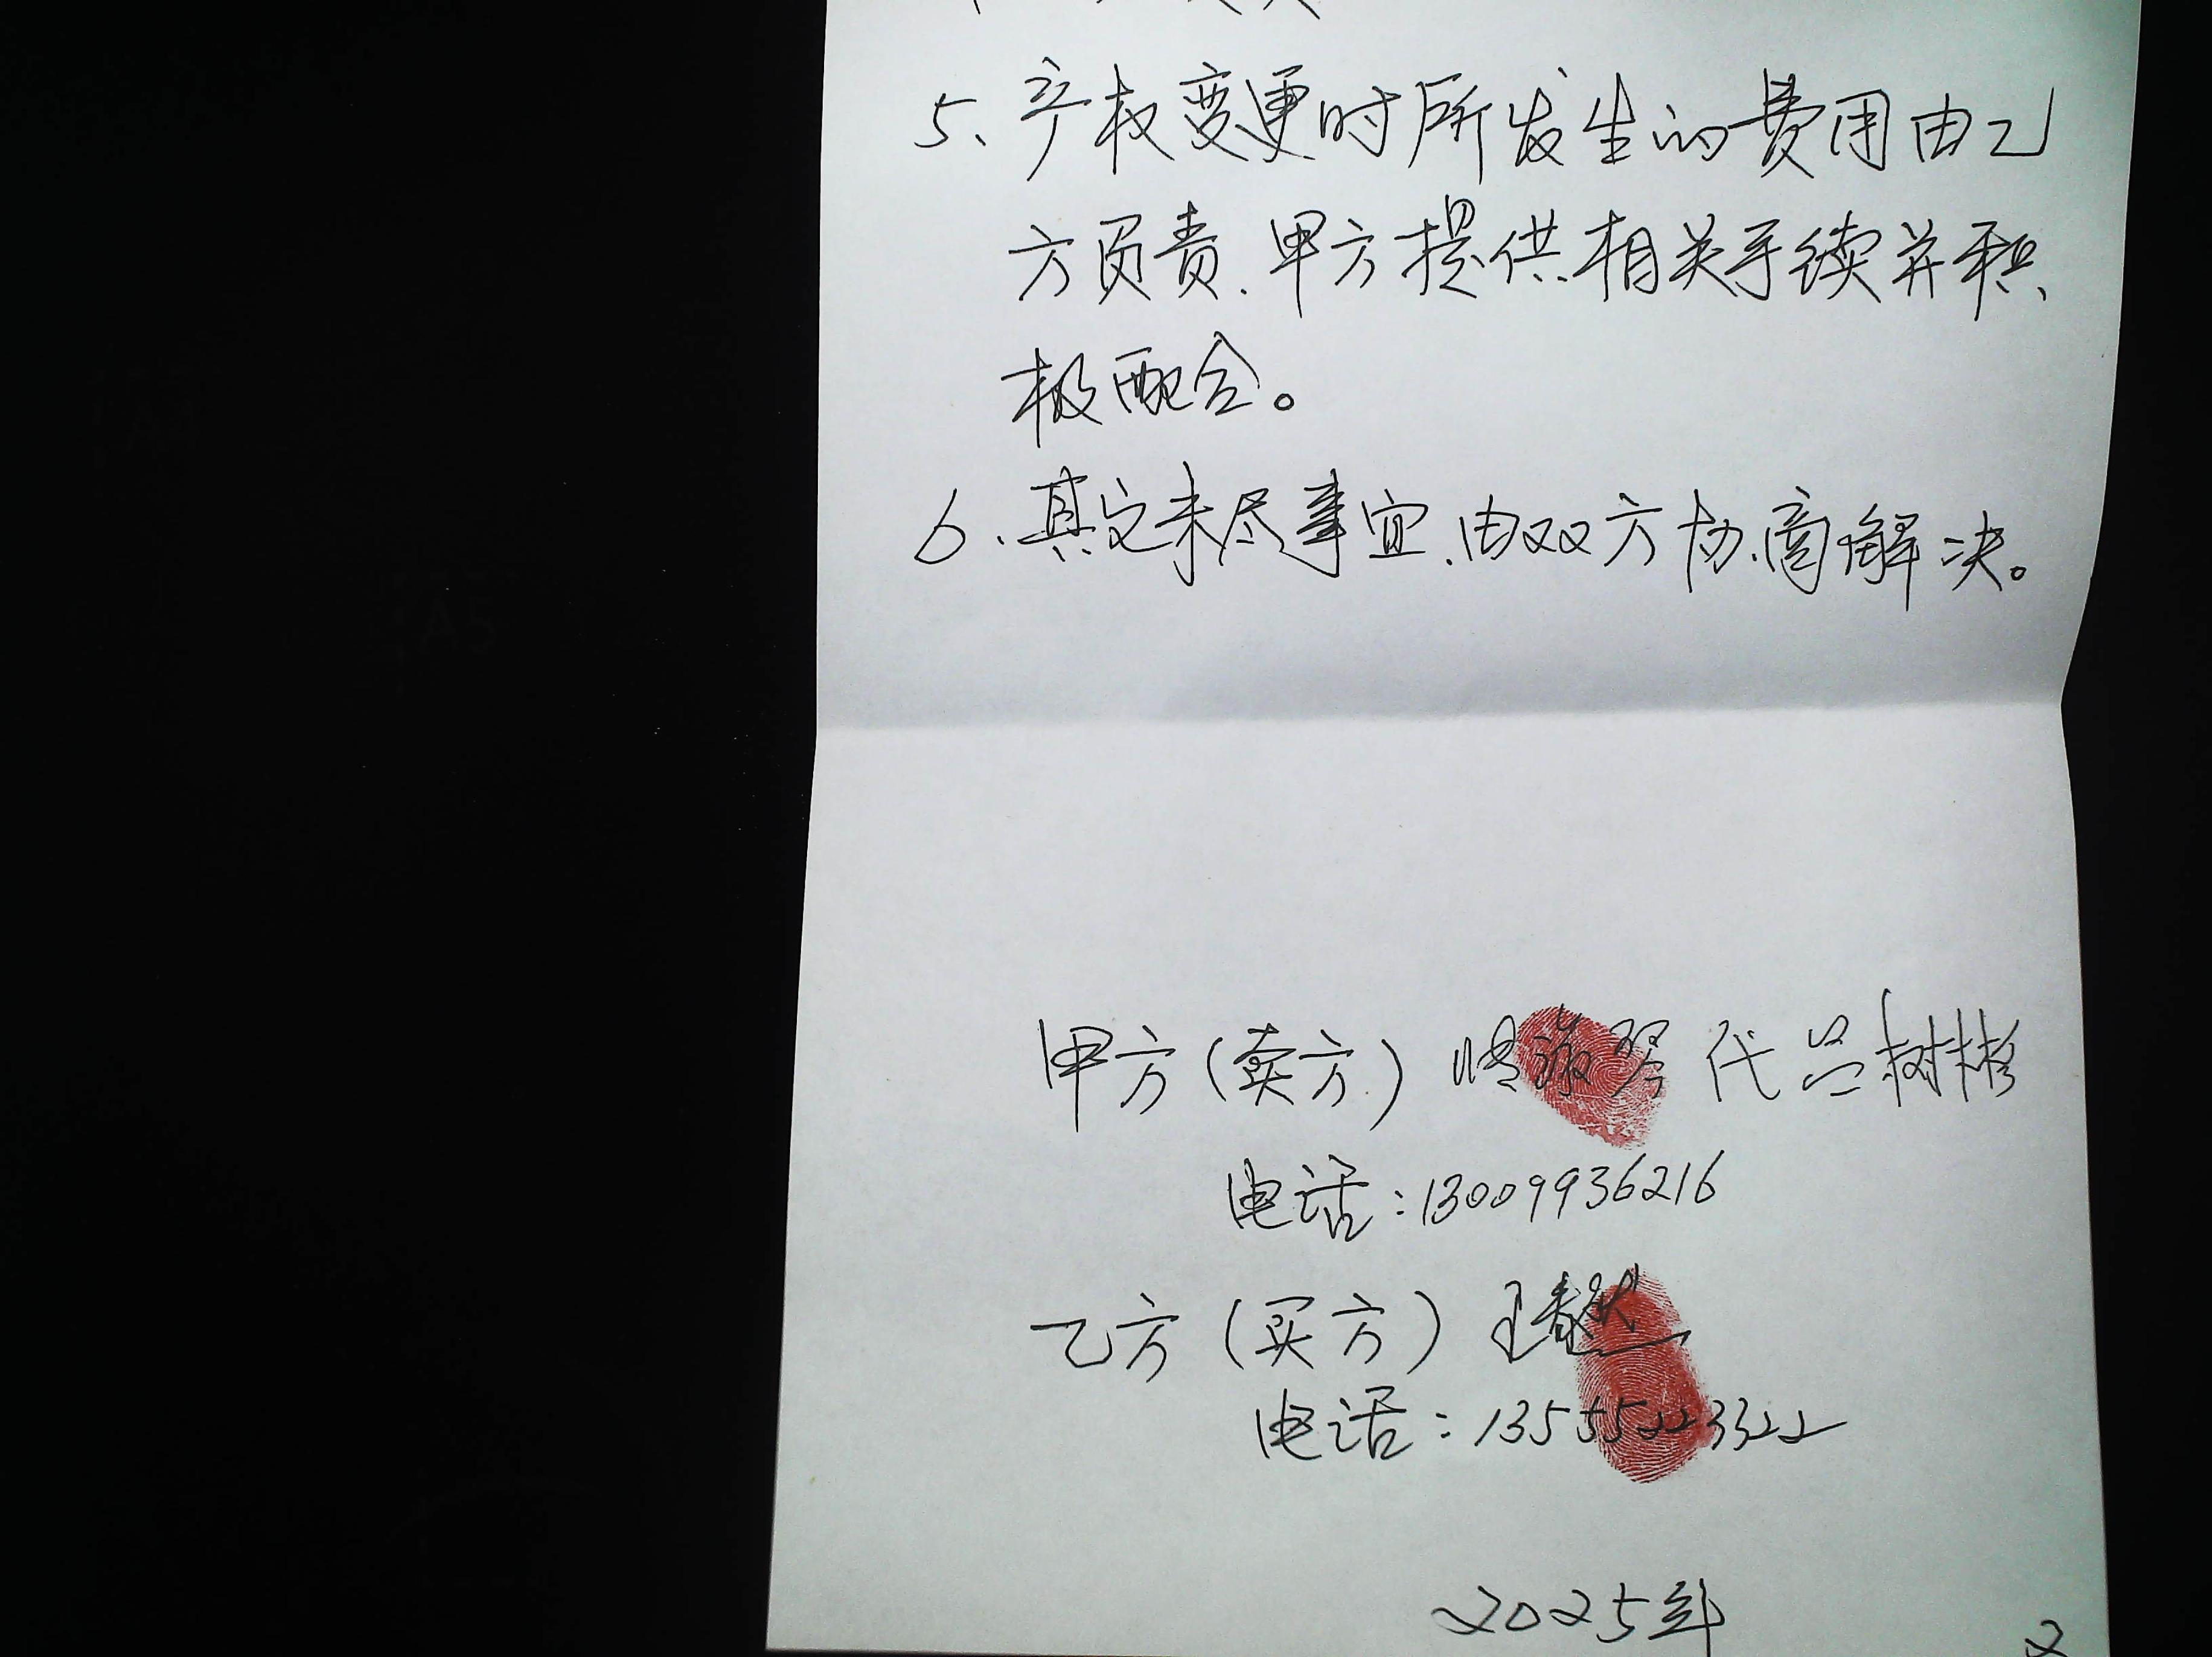 5、产权变更时所发生的费用由乙
方负责.甲方提供相关手续并积
极配合。
6、其它未尽事宜.由双方协商解决。
甲方(卖方) 琴 代 吕树彬
电话:13009936216
乙方(买方) 王春
电话:13555223322
2025年
2